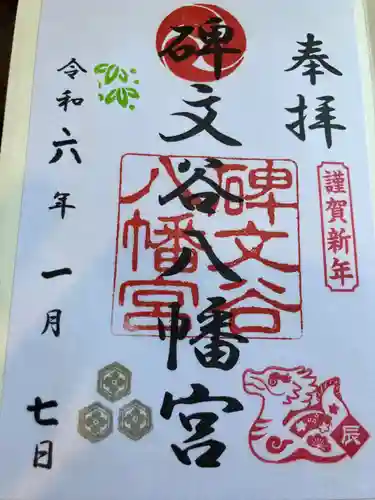 奉拝
謹賀新年
碑文谷八幡宮
碑文谷
八幡宮
令和六年一月七日
辰